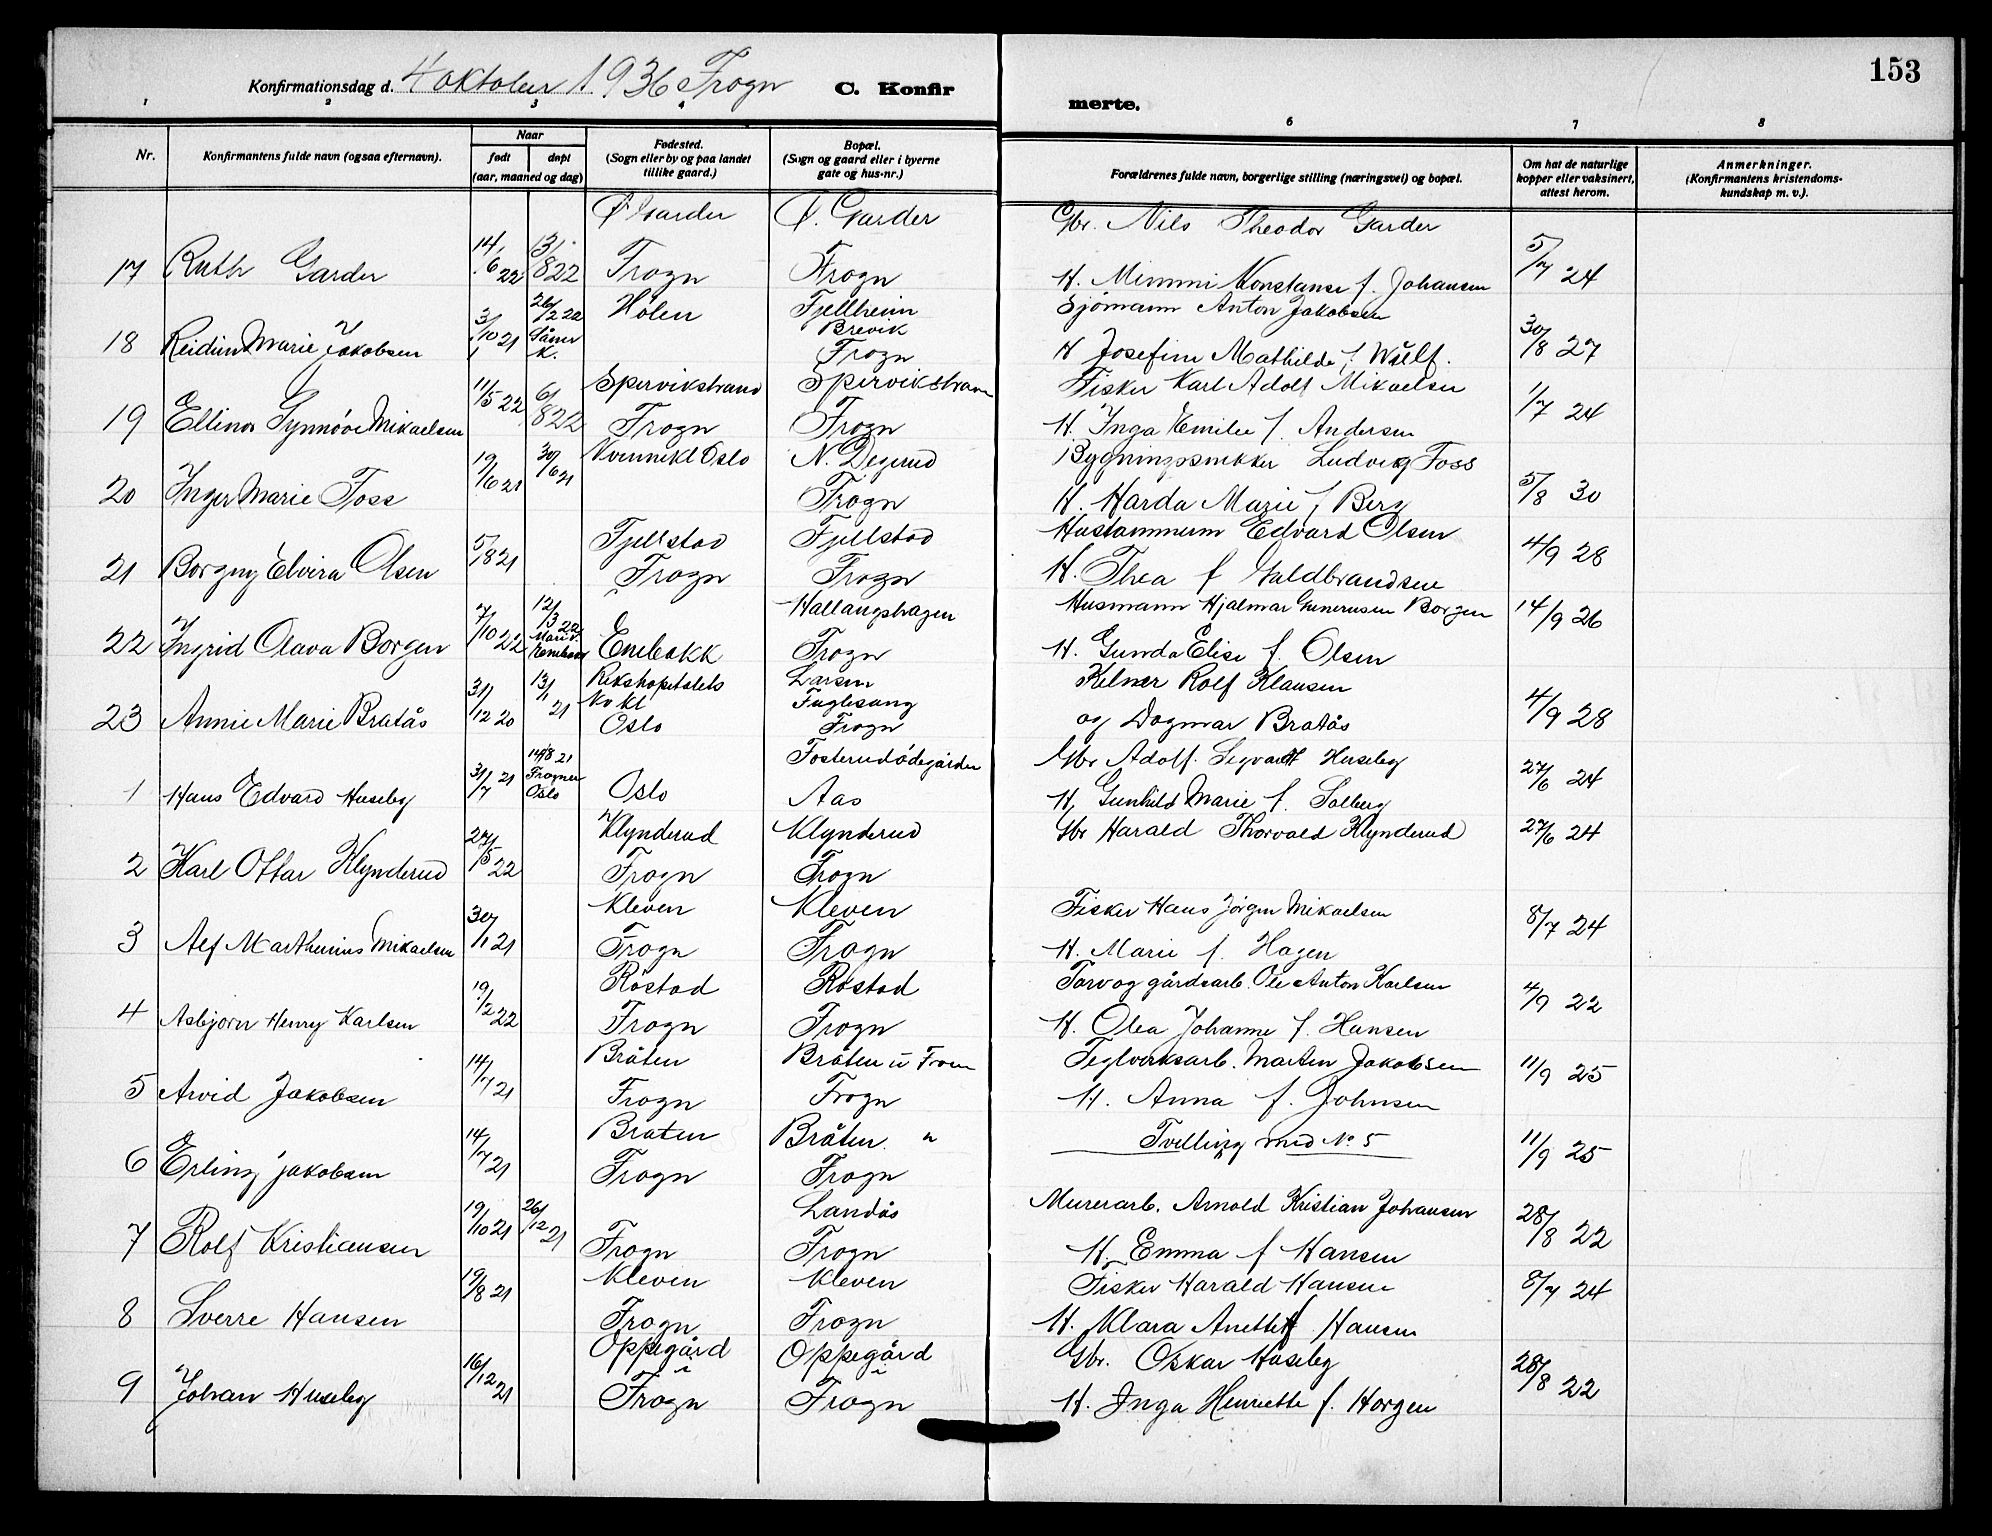 153
Konfirmationsdag d. 4 oktober 1936 Frogn C. Konfirmerte.
1 2 3 4 6 7 8
Nr. Konfirmantens fulde navn (ogsaa efternavn). Naar født døpt (aar, maaned og dag) Fødested. (Sogn eller by og paa landet tillike gaard.) Bopæl. (Sogn og gaard eller i byerne gate og hus-nr.) Forældrenes fulde navn, borgerlige stilling (næringsvei) og bopæl. Om hat de naturlige kopper eller vaksinert, attest herom. Anmerkninger. (Konfirmantens kristendomskundskap m. v.).
Ø Garder Ø. Garder Gbr. Nils Theodor Garder
17 Ruth Garder 14/6 22 13/8 22 Frogn Frogn H. Mimmi Konstanse f. Johansen 5/7 24
Hølen Fjellheim Brevik Sjömann Anton Jakobsen
18 Reidun Marie Jakobsen 3/10 21 26/2 22 Såner K. Frogn H Josefine Mathilde f. Wülf. 30/8 27
Spervikstrand Spervikstrann Fisker Karl Adolf Mikaelsen
19 Ellinor Synnöve Mikaelsen 11/5 22 6/8 22 Frogn Frogn H. Inga Emilie f. Andersen 1/7 24
Kvinnekl Oslo N. Degerud Bygningssnikker Ludvig Foss
20 Inger Marie Foss 19/6 21 30/6 21 Frogn H. Harda Marie f Berg 5/8 30
Fjellstad Fjellstad Hustømmerm Edvard Olsen
21 Borgny Elvira Olsen 5/8 21 Frogn Frogn H. Thea f Guldbrandsen 4/9 28
Hallangshagen Husmann Hjalmar Gunerusen Borgen 14/9 26
22 Ingrid Olava Borgen 7/10 22 12/3 22 Enebakk Frogn H. Gunda Elise f. Olsen
Rikshopitalets Kv kl Larsen Fuglesang Kelner Rolf Klausen
23 Annie Marie Bratås 31/12 20 13/1 21 Oslo Frogn og Dagmar Bratås 4/9 28
Fosterudödegården Gbr Adolf Segvart Huseby
1 Hans Edvard Huseby 31/7 21 14/8 21 Frogner Oslo Oslo Aas H, Gunhild Marie f. Solberg 27/6 24
Klynderud Klynderud Gbr Harald Thorvald Klynderud 27/6 24
2 Karl Ottar Klynderud 27/5 22 Frogn Frogn
Kleven Kleven Fisker Hans Jörgen Mikaelsen
3 Alf Marthinius Mikaelsen 30/1 21 Frogn Frogn H. Marie f. Hagen 8/7 24
Röstad Röstad Torv og gårdsarb. Ole Anton Karlsen
4 Asbjørn Henry Karlsen 19/2 22 Frogn Frogn H. Olea Johanne f. Hansen 4/9 22
Bråten Bråten u Froen Teglverksarb. Marten Jakobsen
5 Arvid Jakobsen 14/7 21 Frogn Frogn H. Anna f. Johnsen 11/9 25
Bråten Bråten "
6 Erling Jakobsen 14/7 21 Frogn Frogn Tvilling med No 5 11/9 25
Landås Murerarb. Arnold Kristian Johansen
7 Rolf Kristiansen 19/10 21 26/12 21 Frogn Frogn H. Emma f Hansen 28/8 22
Kleven Kleven Fisker Harald Hansen
8 Sverre Hansen 19/8 21 Frogn Frogn H. Klara Anette f Hansen 8/7 24
Oppegård i Oppegård i Gbr. Oskar Huseby
9 Johan Huseby 16/12 21 Frogn Frogn H. Inga Henriette f. Horgen 28/8 22